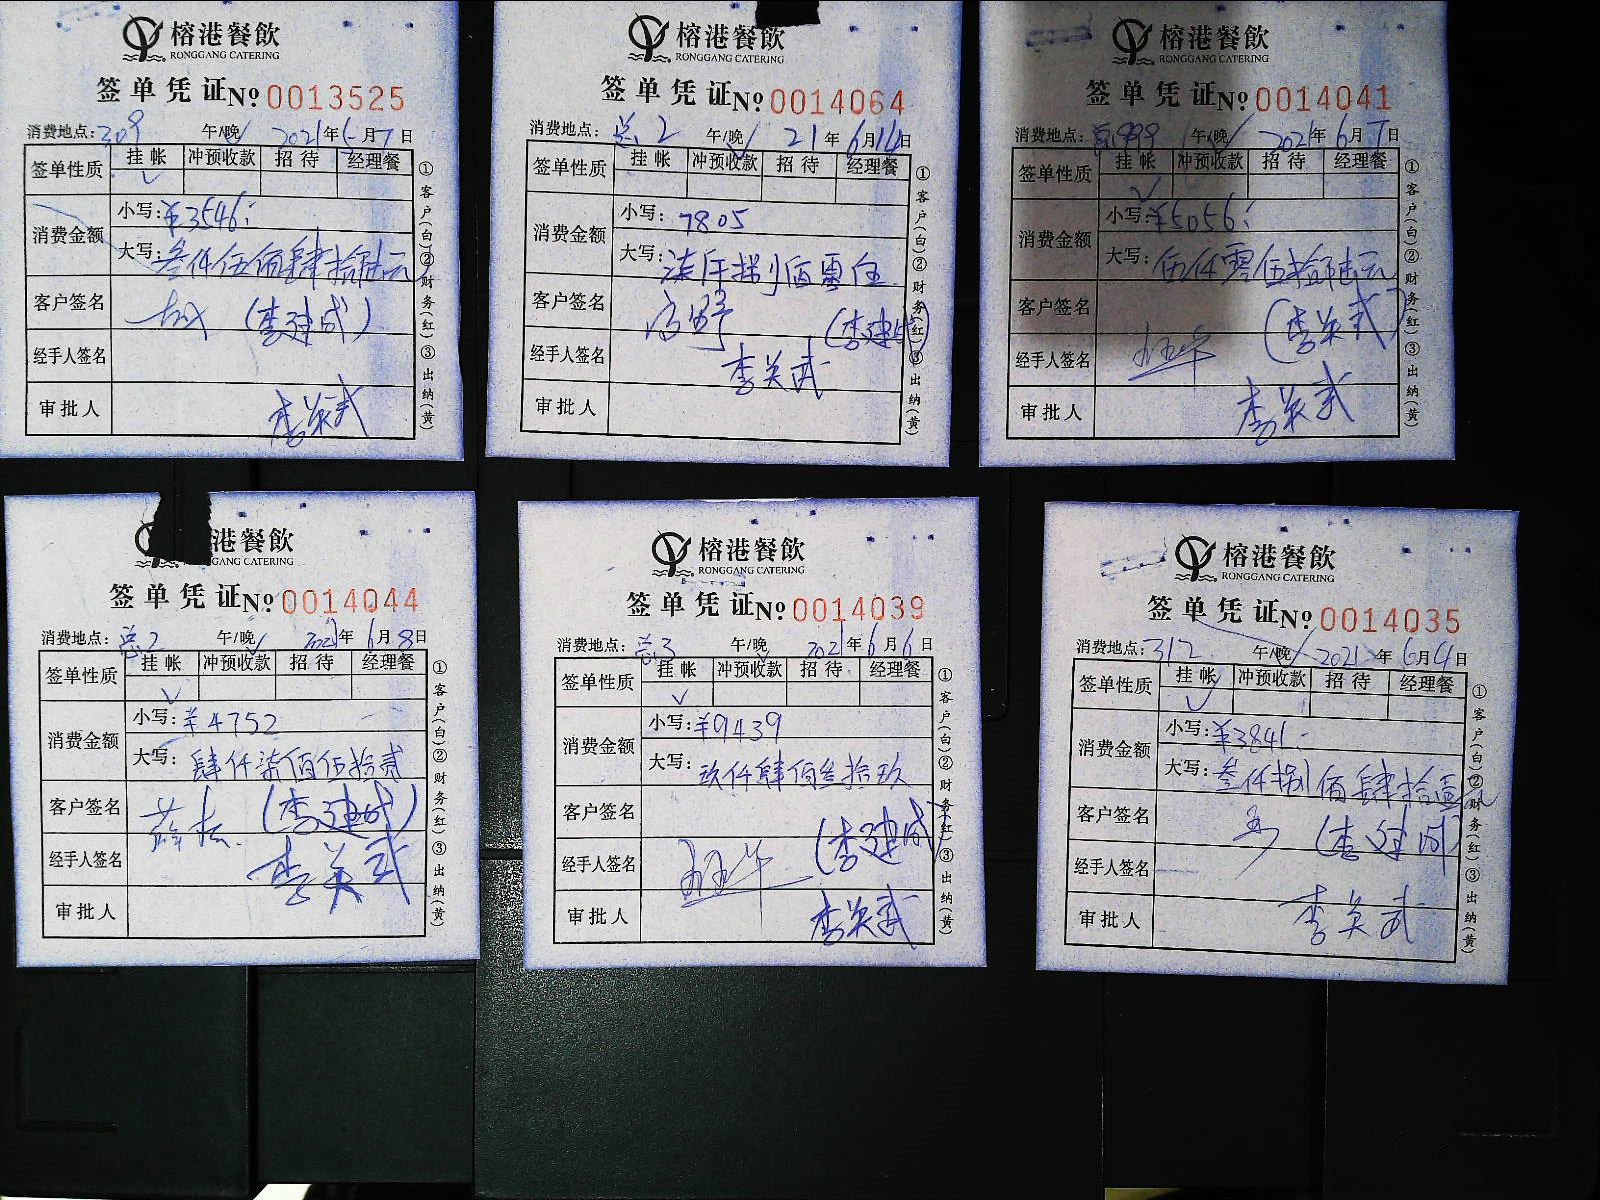 榕港餐飲
RONGGANG CATERING
签单凭证 No 0013525
消费地点: 309 午/晚 2021年6月7日
签单性质 挂帐 冲预收款 招待 经理餐
消费金额 小写: ¥3546:
大写: 叁仟伍佰肆拾陆元
客户签名 (李建成)
经手人签名
审批人 李英武
①客户(白)②财务(红)③出纳(黄)
榕港餐飲
RONGGANG CATERING
签单凭证 No 0014064
消费地点: 总2 午/晚 21年6月14日
签单性质 挂帐 冲预收款 招待 经理餐
消费金额 小写: 7805
大写: 柒仟捌佰零伍
客户签名 (李建成)
经手人签名 李英武
审批人
①客户(白)②财务(红)③出纳(黄)
榕港餐飲
RONGGANG CATERING
签单凭证 No 0014041
消费地点: 总999 午/晚 2021年6月7日
签单性质 挂帐 冲预收款 招待 经理餐
消费金额 小写: ¥5056:
大写: 伍仟零伍拾陆元
客户签名 (李英武)
经手人签名
审批人 李英武
①客户(白)②财务(红)③出纳(黄)
港餐飲
GANG CATERING
签单凭证 No 0014044
消费地点: 总2 午/晚 2021年6月8日
签单性质 挂帐 冲预收款 招待 经理餐
消费金额 小写: ¥4752
大写: 肆仟柒佰伍拾贰
客户签名 (李建成)
经手人签名 李英武
审批人
①客户(白)②财务(红)③出纳(黄)
榕港餐飲
RONGGANG CATERING
签单凭证 No 0014039
消费地点: 总3 午/晚 2021年6月6日
签单性质 挂帐 冲预收款 招待 经理餐
消费金额 小写: ¥9439
大写: 玖仟肆佰叁拾玖
客户签名 (李建成)
经手人签名
审批人 李英武
①客户(白)②财务(红)③出纳(黄)
榕港餐飲
RONGGANG CATERING
签单凭证 No 0014035
消费地点: 312 午/晚 2021年6月4日
签单性质 挂帐 冲预收款 招待 经理餐
消费金额 小写: ¥3841.-
大写: 叁仟捌佰肆拾壹元
客户签名 (李建成)
经手人签名
审批人 李英武
①客户(白)②财务(红)③出纳(黄)